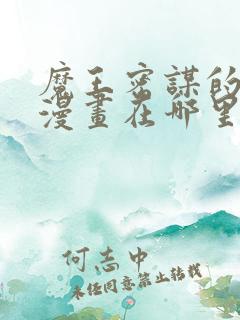 魔王密謀的
漫畫在哪里
何志中
未经同意禁止转载